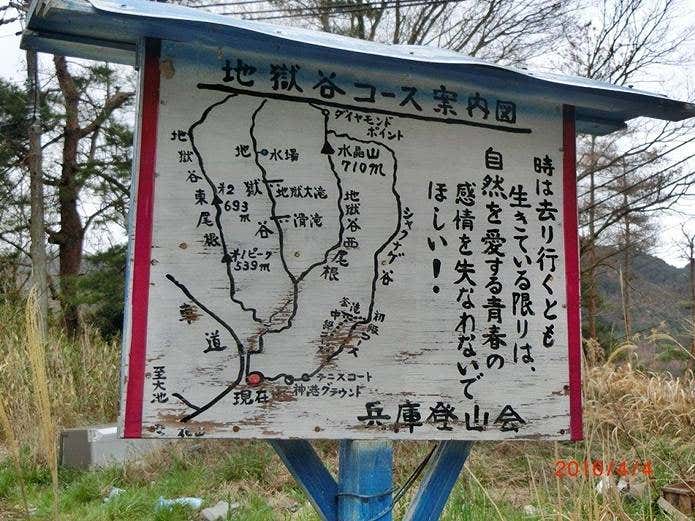 地獄谷コース案内図
ダイヤモンド
ポイント
水晶山
710m
水場
地獄大滝
滑滝
地獄谷
地獄谷東尾根
地獄谷西尾根
シャクナゲ谷
693
m
オ1ピーク
539m
車道
至大池
現在
テニスコート
神港グラウンド
初級
コース
時は去り行くとも
生きている限りは、
自然を愛する青春の
感情を失なわないで
ほしい!
兵庫登山会
2010/4/4